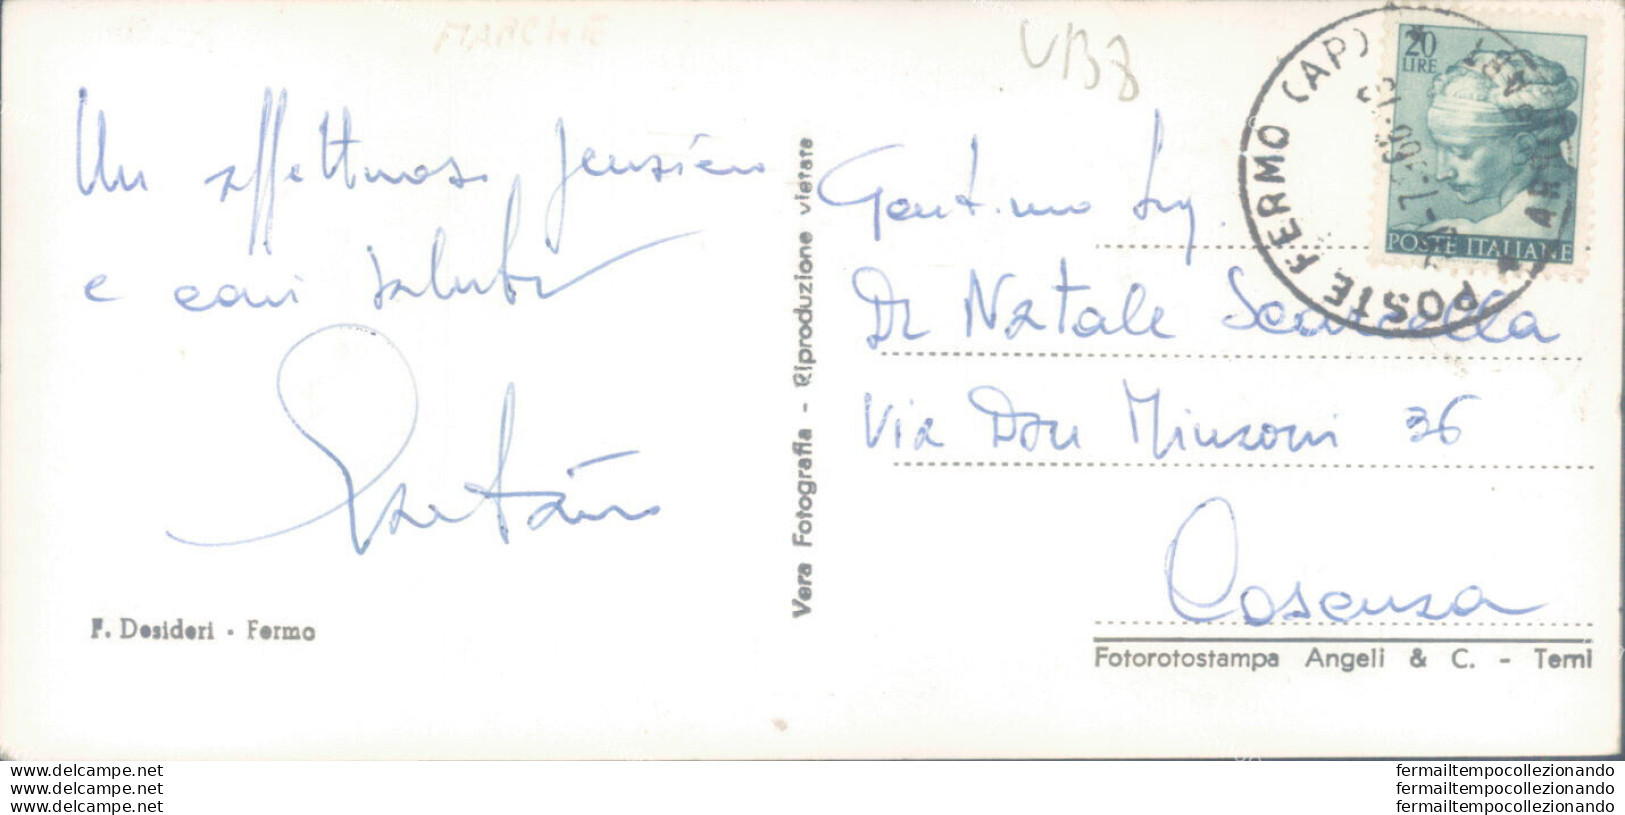 MARCHE
VB8
Un affettuoso pensiero
e cari saluti
Gaetano
F. Desideri - Fermo
Vera Fotografia - Riproduzione vietata
20
LIRE
POSTE ITALIANE
POSTE FERMO (AP)
Gent.mo Sig.
Dr Natale Scarcella
Via Don Minzoni 36
Cosenza
Fotorotostampa Angeli & C. - Terni
www.delcampe.net
www.delcampe.net
www.delcampe.net
fermailtempocollezionando
fermailtempocollezionando
fermailtempocollezionando